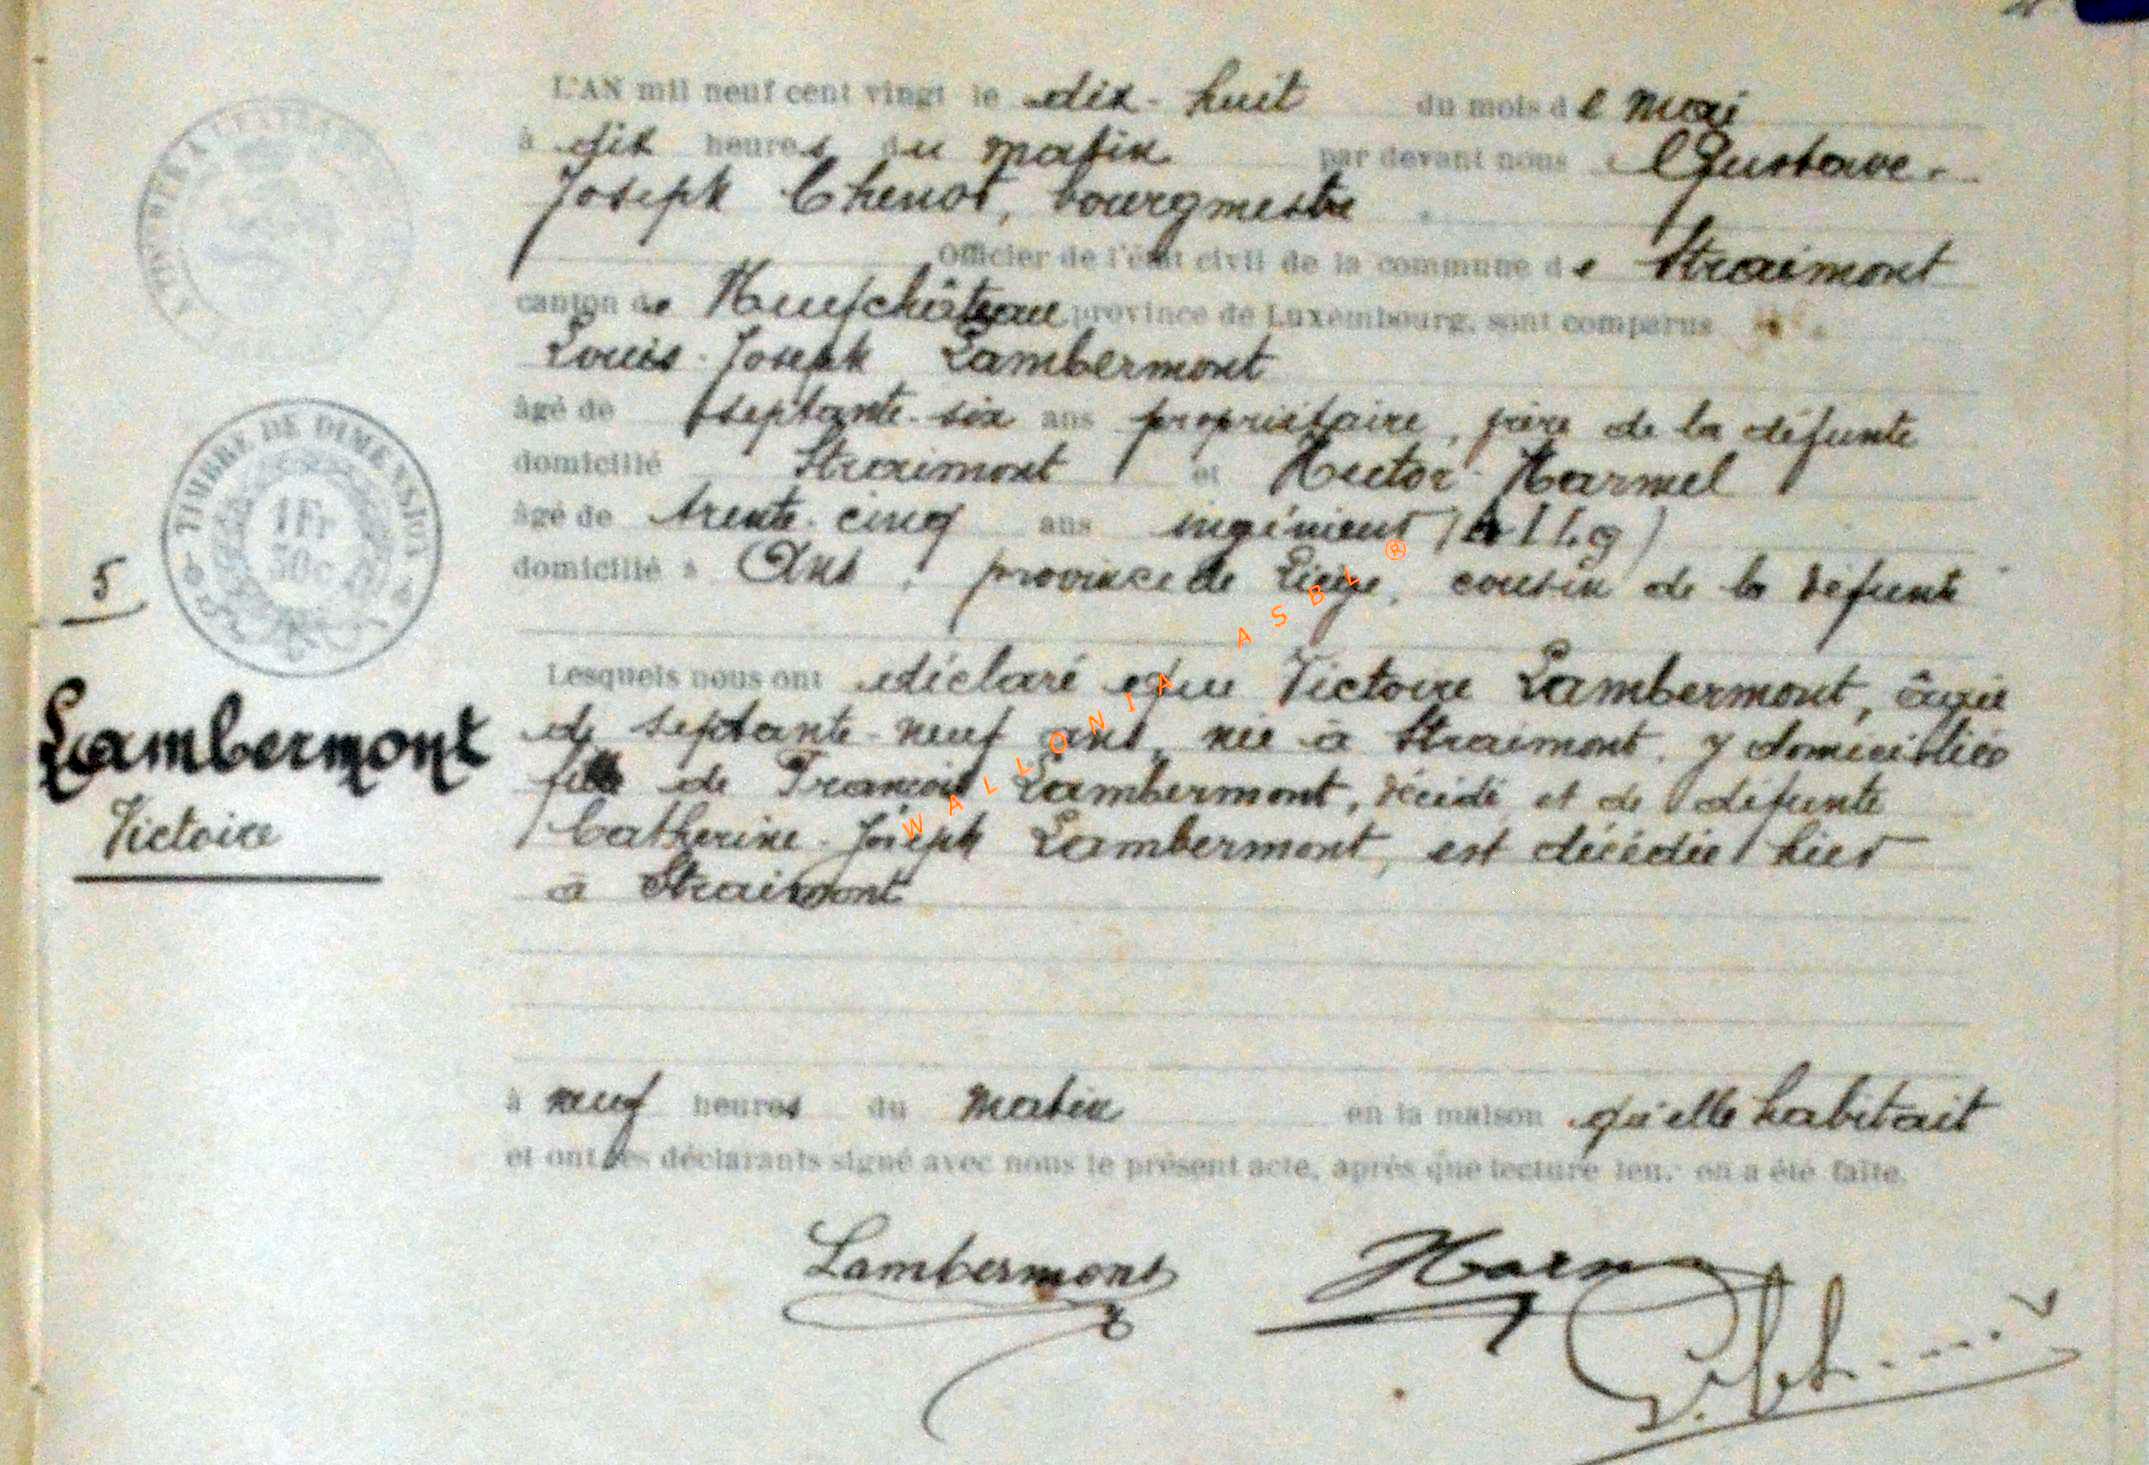 L'AN mil neuf cent vingt le dix-huit du mois de mai
à dix heures du matin par devant nous Gustave-
Joseph Chenot, bourgmestre
Officier de l'état civil de la commune de Straimont
canton de Neufchâteau province de Luxembourg, sont comparus
Louis-Joseph Lambermont
âgé de septante-six ans propriétaire, frère de la défunte
domicilié Straimont et Hector Harmel
âgé de trente-cinq ans ingénieur
domicilié à Ans, province de Liége, cousin de la défunte
Lesquels nous ont déclaré que Victoire Lambermont, âgée
de septante-neuf ans, née à Straimont, y domiciliée
fille de François Lambermont, décédé et de défunte
Catherine-Joseph Lambermont, est décédée hier
à Straimont
à neuf heures du matin en la maison qu'elle habitait
et ont les déclarants signé avec nous le présent acte, après que lecture leur en a été faite.
TIMBRE DE DIMENSION
1 Fr
30c
5
Lambermont
Victoire
Lambermont
WALLONIA ASBL ®